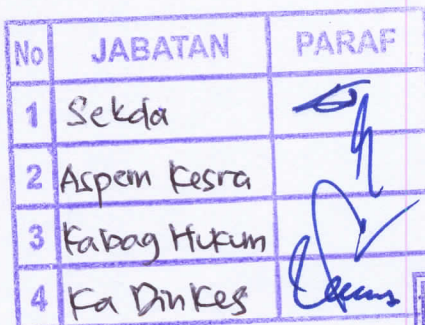 No JABATAN PARAF
1 Sekda
2 Aspem Kesra
3 Kabag Hukum
4 Ka Dinkes